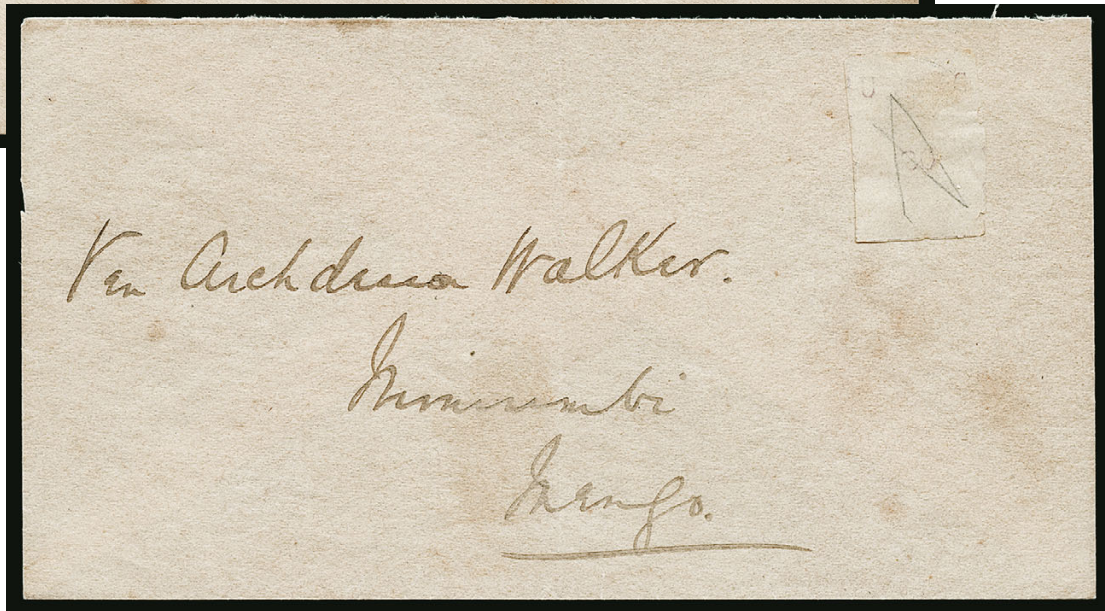 Ven Archdeacon Walker.
Namirembi
Mengo.